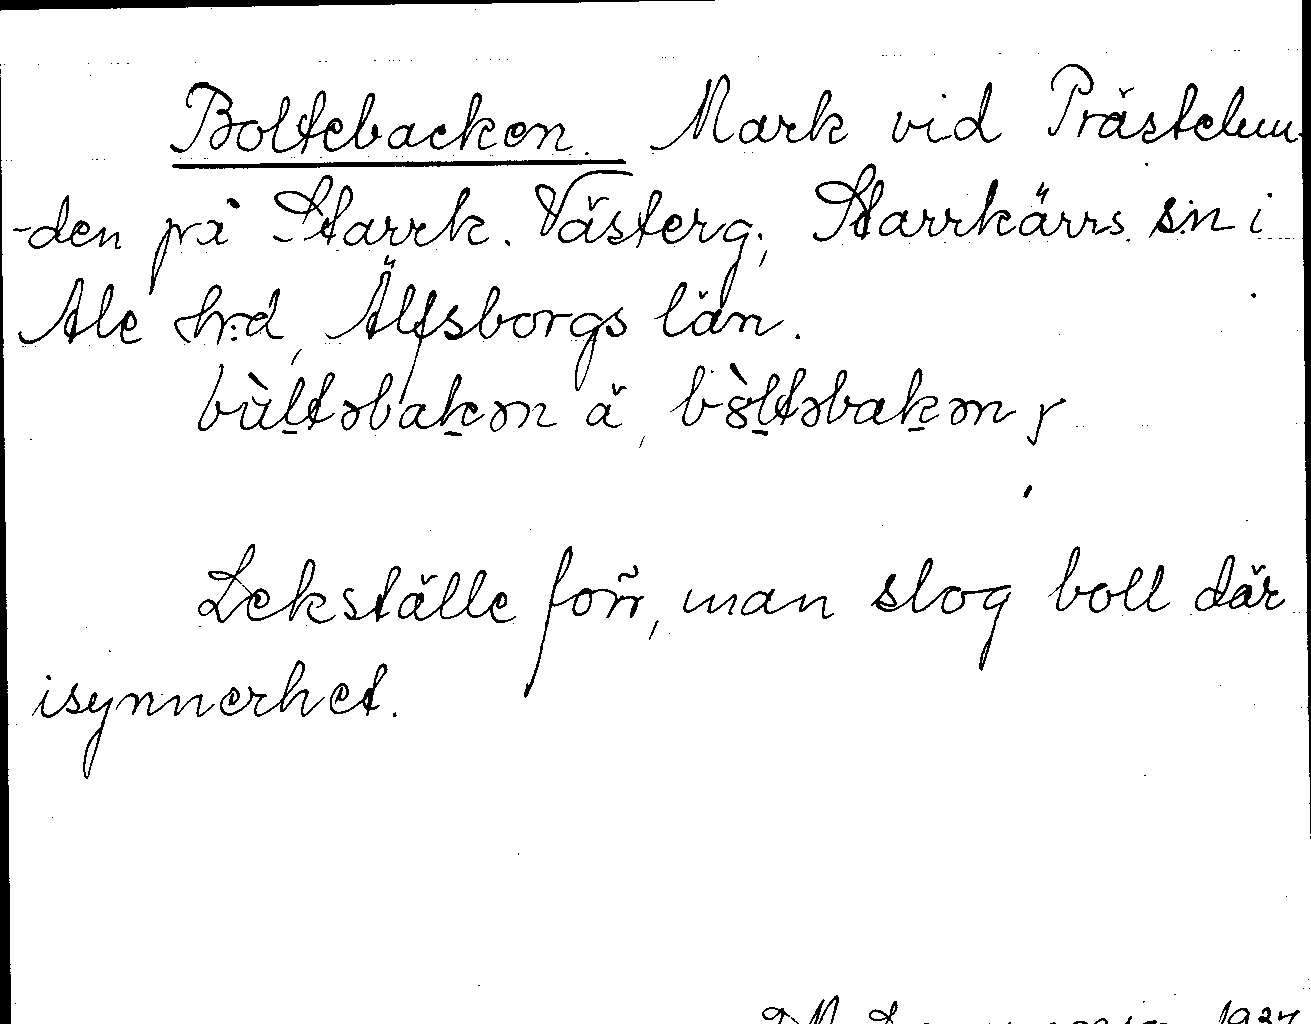 Boltebacken. Mark vid Prästelun-
-den på Starrk. Västerg., Starrkärrs sn i
Ale hrd, Älfsborgs län.
bùltəbakən ä, bòltəbakən,
Lekställe förr, man slog boll där
isynnerhet.
1927